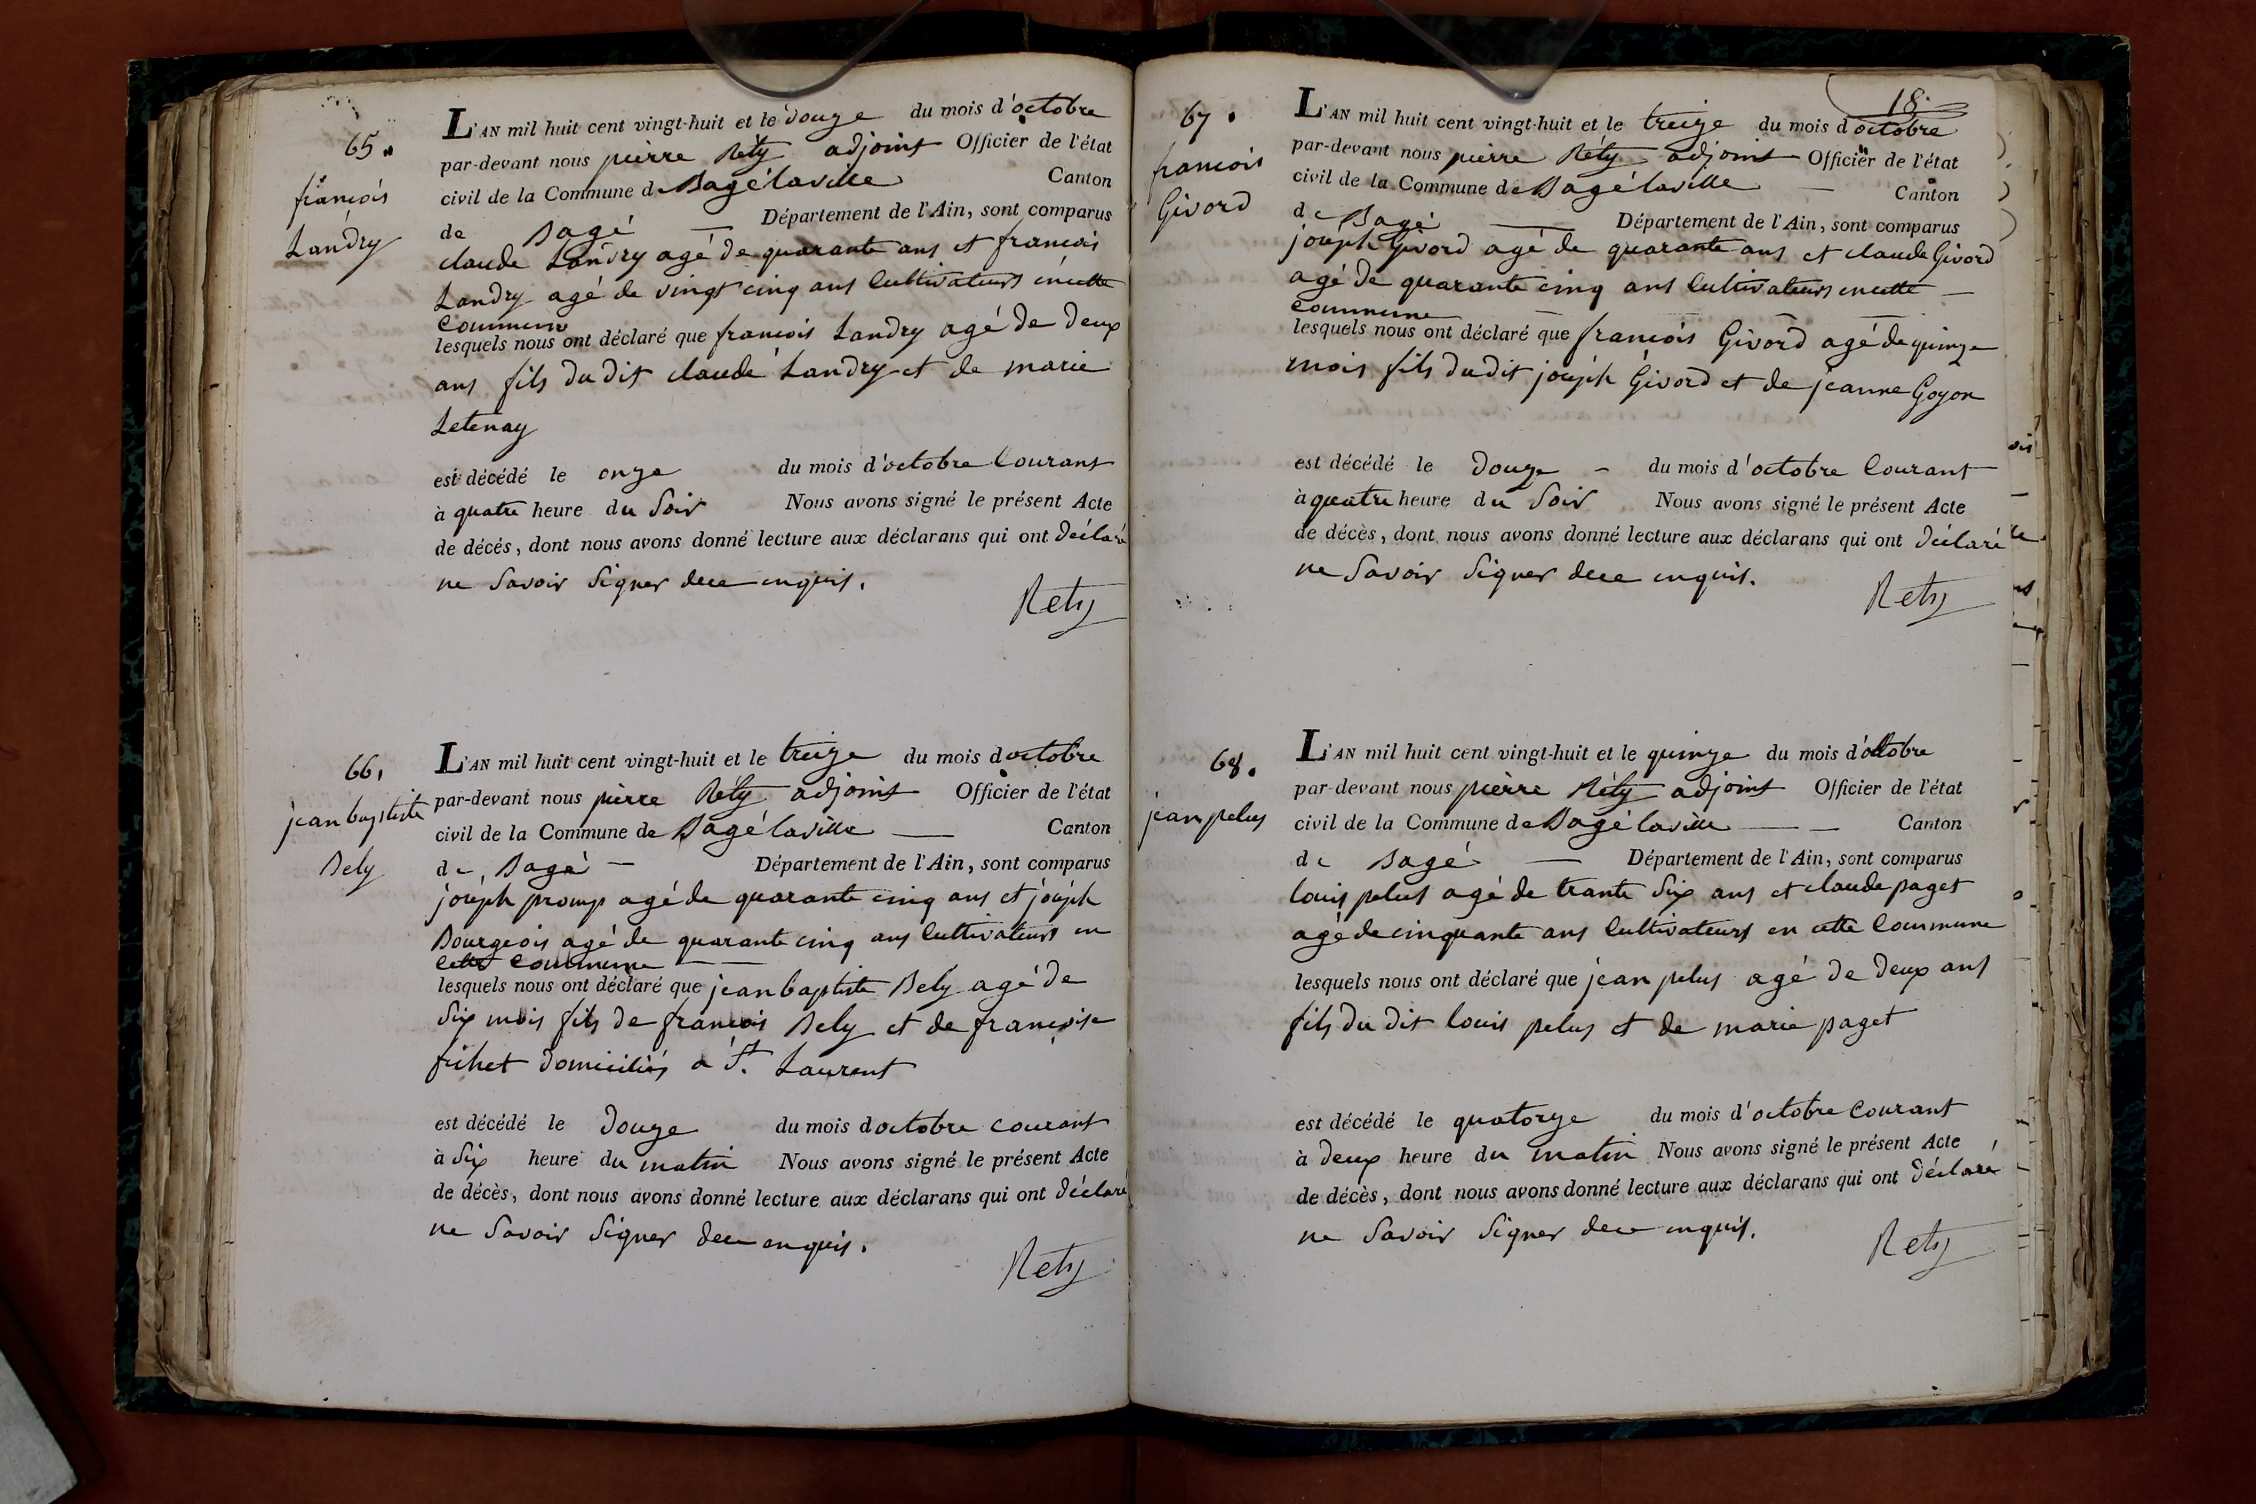 65.
françois
Landry
L'AN mil huit cent vingt-huit et le douze du mois d'octobre
par-devant nous pierre Réty adjoint Officier de l'état
civil de la Commune de Bagélaville Canton
de Bagé — Département de l'Ain, sont comparus
claude Landry agé de quarante ans et francois
Landry agé de vingt cinq ans Cultivateurs en cette
commune
lesquels nous ont déclaré que francois Landry agé de deux
ans fils du dit claude Landry et de marie
Letenay
est décédé le onze du mois d'octobre Courant
à quatre heure du Soir Nous avons signé le présent Acte
de décès, dont nous avons donné lecture aux déclarans qui ont déclaré
ne Savoir Signer de ce enquis.
Rety
66.
jean baptiste
Bely
L'AN mil huit cent vingt-huit et le treize du mois d octobre
par-devant nous pierre Réty adjoint Officier de l'état
civil de la Commune de Bagélaville — Canton
de Bagé — Département de l'Ain, sont comparus
joseph promp agé de quarante cinq ans et joseph
Bourgeois agé de quarante cinq ans Cultivateurs en
cette commune — —
lesquels nous ont déclaré que jean baptiste Bely agé de
Six mois fils de francois Bely et de françoise
domiciliés à St. Laurent
est décédé le douze du mois d octobre courant
à Six heure du matin Nous avons signé le présent Acte
de décès, dont nous avons donné lecture aux déclarans qui ont déclaré
ne Savoir Signer de ce enquis.
Rety
18.
67.
francois
Givord
L'AN mil huit cent vingt-huit et le treize du mois d octobre
par-devant nous pierre Réty adjoint Officier de l'état
civil de la Commune de Bagélaville — Canton
de Bagé — Département de l'Ain, sont comparus
joseph Givord agé de quarante ans et claude Givord
agé de quarante cinq ans Cultivateurs en cette —
commune — — —
lesquels nous ont déclaré que francois Givord agé de quinze
mois fils du dit joseph Givord et de jeanne Goyon
est décédé le douze — du mois d'octobre Courant
à quatre heure du Soir Nous avons signé le présent Acte
de décès, dont nous avons donné lecture aux déclarans qui ont déclaré
ne Savoir Signer de ce enquis.
Rety
68.
jean pelus
L'AN mil huit cent vingt-huit et le quinze du mois d'octobre
par-devant nous pierre Réty adjoint Officier de l'état
civil de la Commune de Bagélaville — — Canton
de Bagé — Département de l'Ain, sont comparus
louis pelus agé de trante Six ans et claude paget
agé de cinquante ans Cultivateurs en cette Commune
lesquels nous ont déclaré que jean pelus agé de deux ans
fils du dit louis pelus et de marie paget
est décédé le quatorze du mois d'octobre Courant
à deux heure du matin Nous avons signé le présent Acte
de décès, dont nous avons donné lecture aux déclarans qui ont déclaré
ne Savoir Signer de ce enquis.
Rety